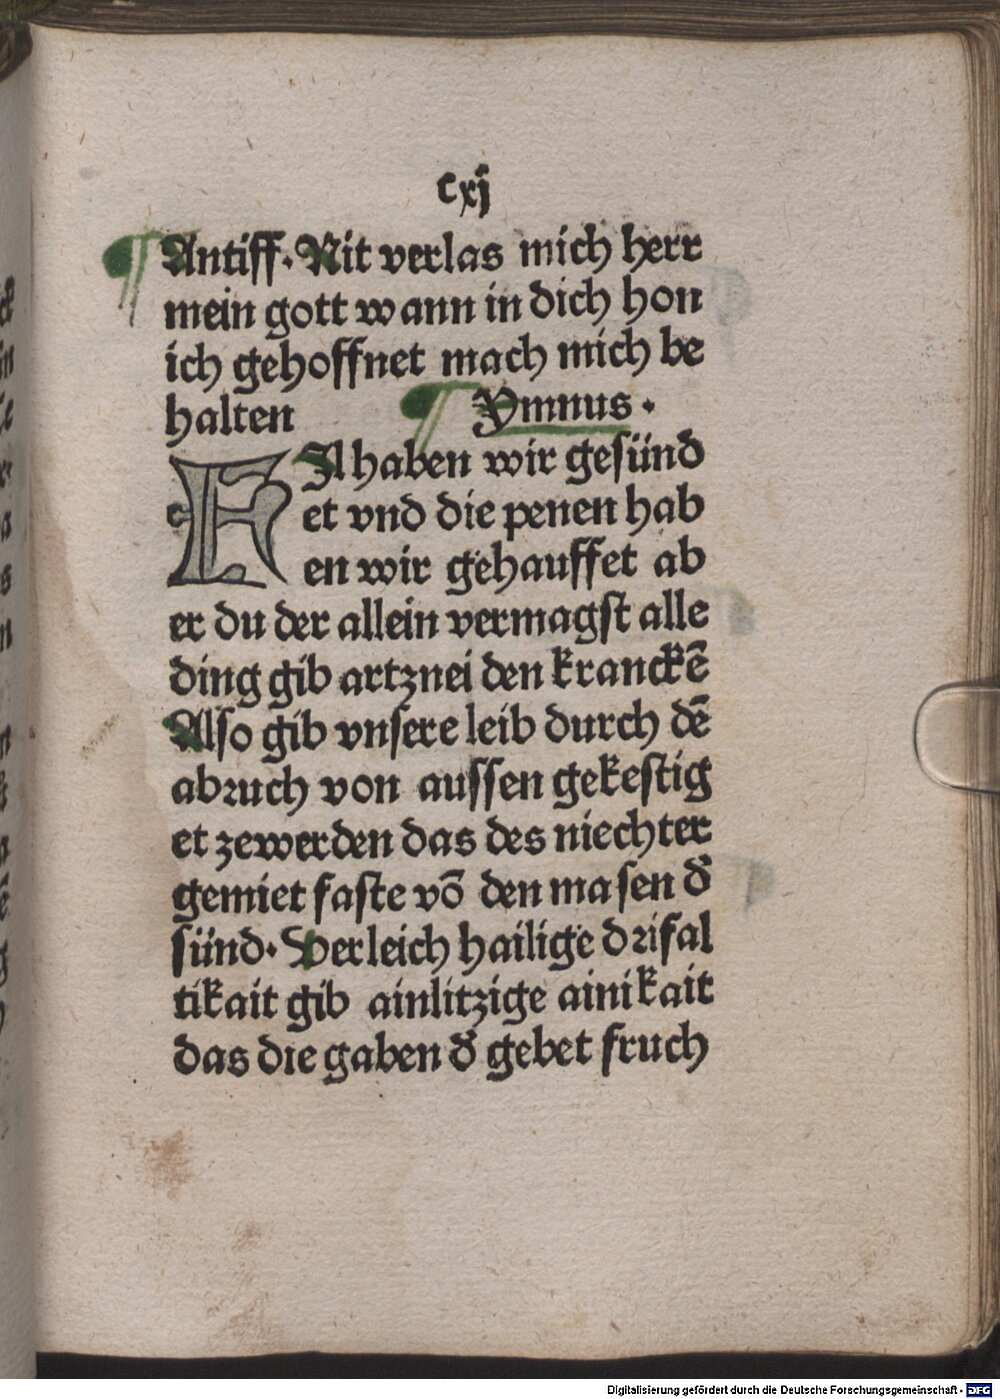 cxj
¶ Antiff. Nit verlas mich herr
mein gott wann in dich hon
ich gehoffnet mach mich be
halten ¶ Ymnus.
Il haben wir gesünd
et vnd die penen hab
en wir gehauffet ab
er du der allein vermagst alle
ding gib artznei den kranckē
Also gib vnsere leib durch dē
abruch von aussen gekestig
et zewerden das des niechter
gemiet faste vō den masen d̄
sünd. Verleich hailige drifal
tikait gib ainlitzige ainikait
das die gaben d̄ gebet fruch
Digitalisierung gefördert durch die Deutsche Forschungsgemeinschaft - DFG